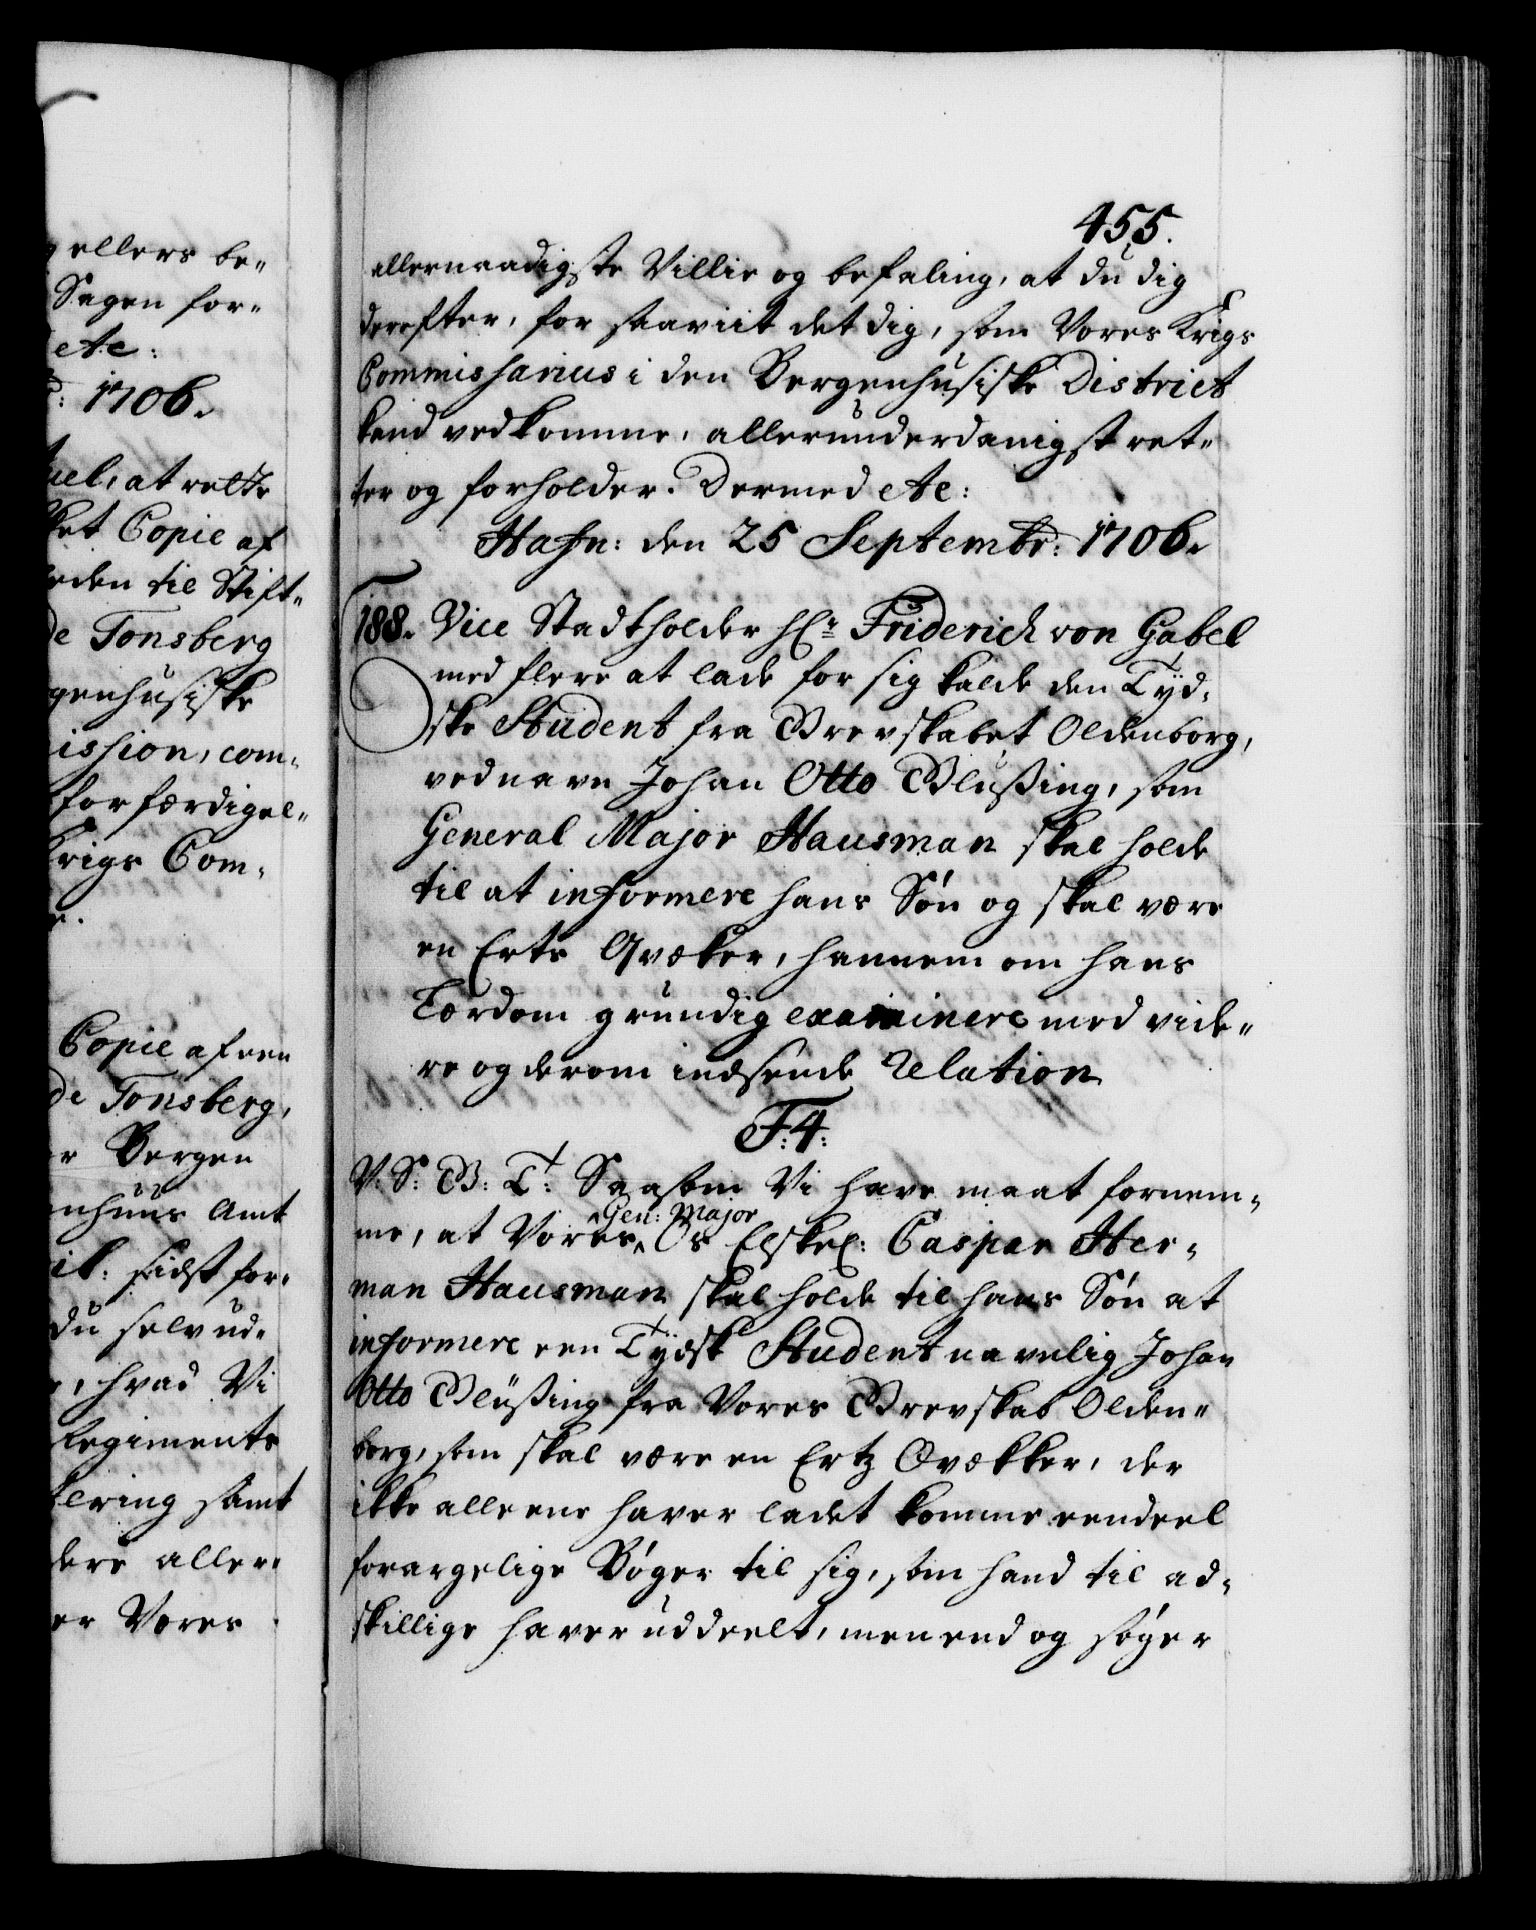 ellers be=
Sagen for=
etc:
1706.
at rette
ket Copie af
eden til Stift=
de Tonsberg
genhusiske
ission, com=
forfærdigel=
Krigs Com=
Copie af een
de Tonsberg,
er Bergen
enhuus Amt
sidst for=
du selv ud=
, hvad Vi
Regiments
tering samt
dere aller=
er Vores
455.
allernaadigste Villie og befaling, at du dig
derefter, for saaviit det dig, som Vores Krigs
Commissarius i den Bergenhusiske District
kand vedkomme, allerunderdanigst ret=
ter og forholder. Dermed etc:
Hafn: den 25 Septembr: 1706.
188. Vice Stadtholder Hr: Friderich von Gabel
med flere at lade for sig kalde den Tyd=
ske Student fra Grevskabet Oldenborg,
ved navn Johan Otto Glüßing, som
General Major Hausman skal holde
til at informere hans Søn og skal være
en Ertz Qvæker, hannem om hans
Lærdom grundig examinere med vide=
re og derom indsende Relation
F: 4:
V: S: G: T: Saasom Vi have maat fornem=
me, at Vores ^Gen: Major Os Elskel: Caspar Her=
man Hausman skal holde til hans Søn at
informere een Tydsk Student navnlig Johan
Otto Glüßing fra Vores Grevskab Olden=
borg, som skal være en Ertz Qvækker, der
ikke alleene haver ladet komme eendeel
forargelige Bøger til sig, som hand til ad=
skillige haver uddeelt, men end og søger